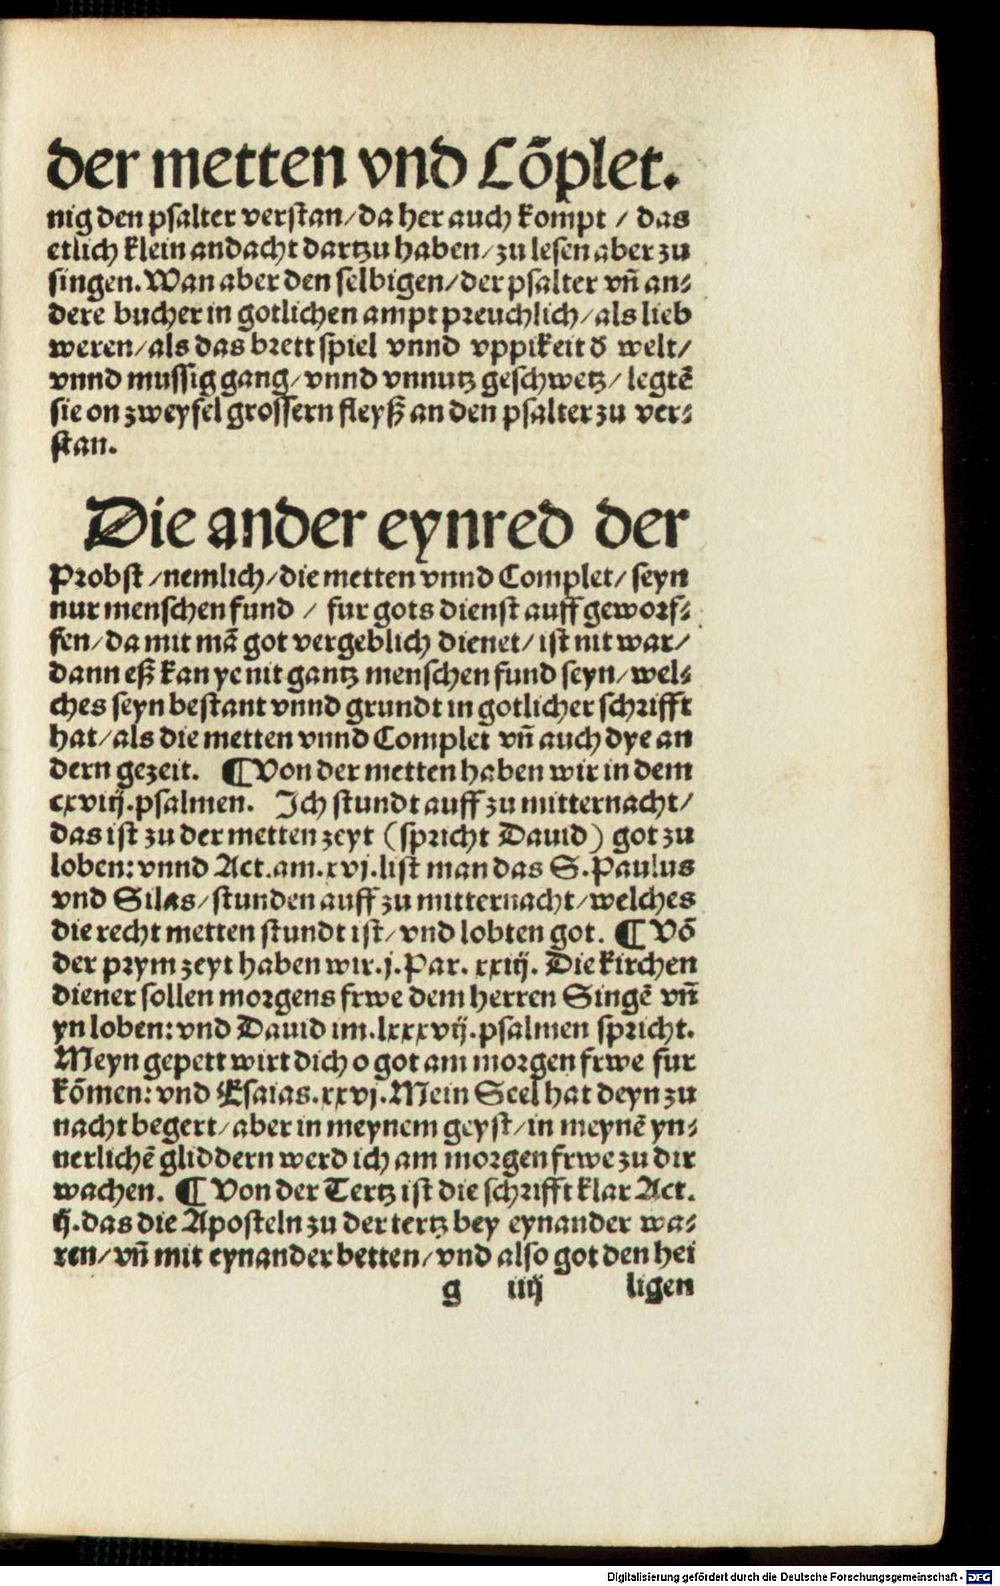 der metten vnd Cõplet.
nig den psalter verstan/da her auch kompt / das
etlich klein andacht dartzu haben/zu lesen aber zu
singen. Wan aber den selbigen/der psalter vñ an⸗
dere bucher in gotlichen ampt preuchlich/als lieb
weren/als das brett spiel vnnd vppikeit d̄ welt/
vnnd mussig gang/vnnd vnnutz geschwetz/ legtẽ
sie on zweyfel grossern fleyß an den psalter zu ver⸗
stan.
Die ander eynred der
Probst /nemlich/die metten vnnd Complet/ seyn
nur menschen fund / fur gots dienst auff geworf⸗
fen/da mit mã got vergeblich dienet/ ist nit war/
dann eß kan ye nit gantz menschen fund seyn/wel⸗
ches seyn bestant vnnd grundt in gotlicher schrifft
hat/als die metten vnnd Complet vñ auch dye an
dern gezeit. ¶ Von der metten haben wir in dem
cxviij.psalmen. Ich stundt auff zu mitternacht/
das ist zu der metten zeyt (spricht Dauid) got zu
loben: vnnd Act.am.xvj.list man das S.Paulus
vnd Silas/stunden auff zu mitternacht/welches
die recht metten stundt ist/vnd lobten got. ¶ Võ
der prym zeyt haben wir.j.Par. xxiij. Die kirchen
diener sollen morgens frwe dem herren Singẽ vñ
yn loben: vnd Dauid im.lxxxvij.psalmen spricht.
Meyn gepett wirt dich o got am morgen frwe fur
kõmen: vnd Esaias.xxvj.Mein Seel hat deyn zu
nacht begert/aber in meynem geyst/in meynẽ yn⸗
nerlichẽ gliddern werd ich am morgen frwe zu dir
wachen. ¶ Von der Tertz ist die schrifft klar Act.
ij.das die Aposteln zu der tertz bey eynander wa⸗
ren/vñ mit eynander betten/vnd also got den hei
g iiij ligen
Digitalisierung gefördert durch die Deutsche Forschungsgemeinschaft - DFG